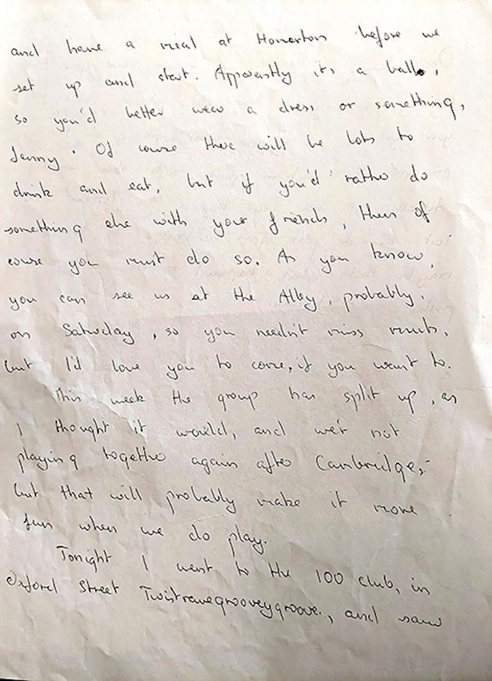 and have a meal at Homerton before we
set up and start. Apparently its a ball,
so you'd better wear a dress or something,
funny. Of course there will be lots to
drink and eat, but if you'd rather do
something else with your friends, then of
course you must do so. As you know,
you can see us at the Alley, probably,
on Saturday, so you needn't miss much,
but I'd love you to come, if you want to.
This week the group has split up, as
I thought it would, and we're not
playing together again after Cambridge,
but that will probably make it more
fun when we do play.
Tonight I went to the 100 club, in
Oxford Street, and saw